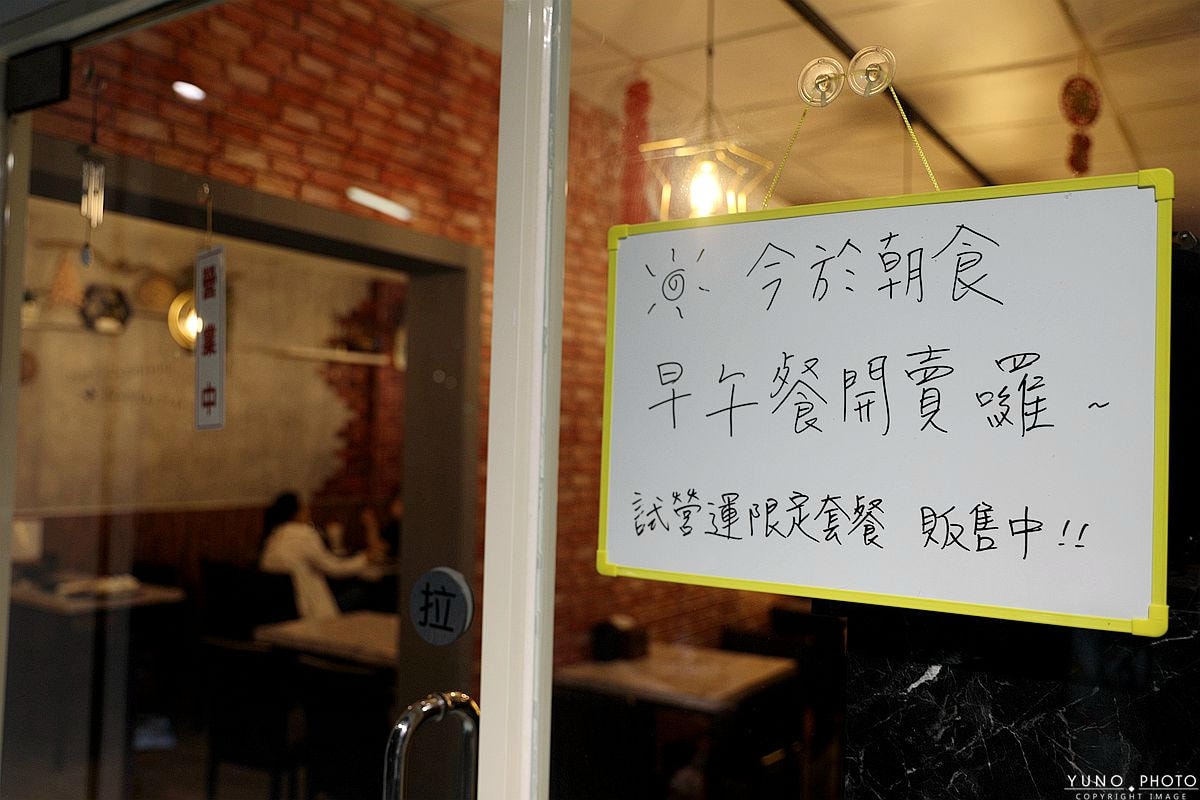 營業中
拉
今於朝食
早午餐開賣囉~
試營運限定套餐 販售中!!
YUNO PHOTO
COPYRIGHT IMAGE